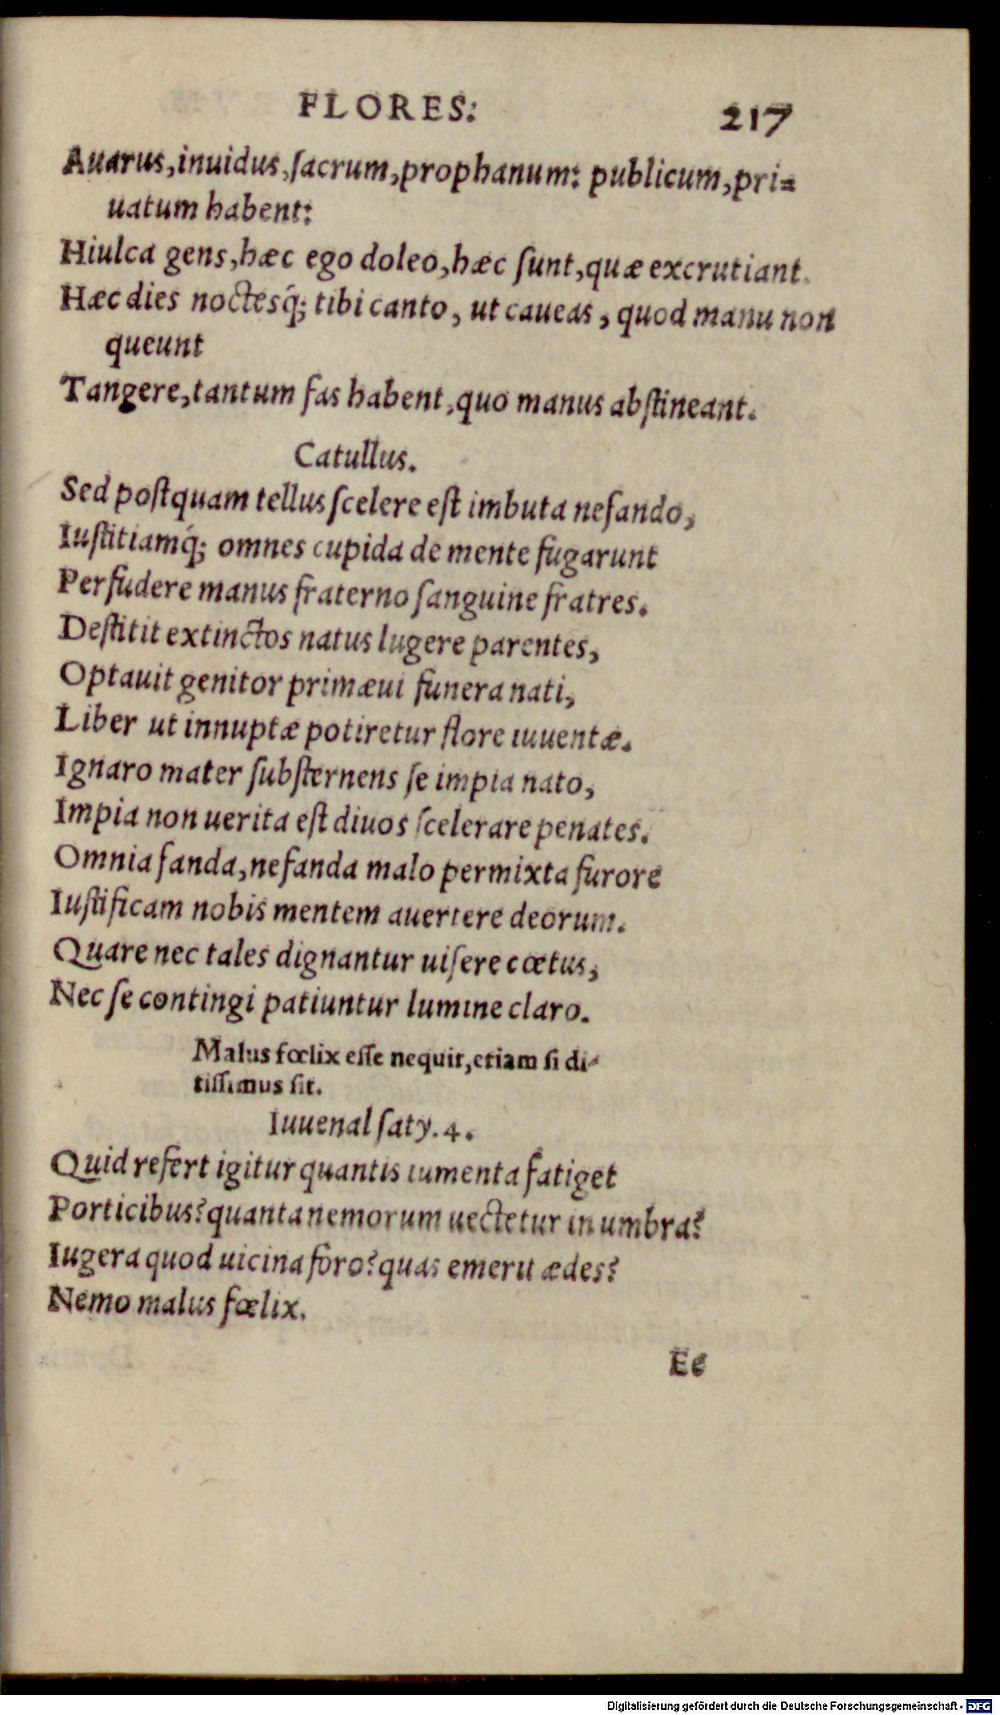 FLORES: 217
Auarus,inuidus,ſacrum,prophanum: publicum,pri=
uatum habent:
Hiulca gens,hæc ego doleo,hæc ſunt,quæ excrutiant.
Hæc dies noctesq́; tibi canto, ut caueas, quod manu non
queunt
Tangere,tantum fas habent,quo manus abſtineant.
Catullus.
Sed poſtquam tellus ſcelere eſt imbuta nefando,
Iuſtitiamq́; omnes cupida de mente fugarunt
Perfudere manus fraterno ſanguine fratres.
Deſtitit extinctos natus lugere parentes,
Optauit genitor primæui funera nati,
Liber ut innuptæ potiretur flore iuuentæ.
Ignaro mater ſubſternens ſe impia nato,
Impia non uerita eſt diuos ſcelerare penates.
Omnia fanda,nefanda malo permixta furore
Iuſtificam nobis mentem auertere deorum.
Quare nec tales dignantur uiſere cœtus,
Nec ſe contingi patiuntur lumine claro.
Malus fœlix eſſe nequit,etiam ſi di-
tiſſimus ſit.
Iuuenal ſaty. 4.
Quid refert igitur quantis iumenta fatiget
Porticibus? quanta nemorum uectetur in umbra?
Iugera quod uicina foro? quas emerit ædes?
Nemo malus fœlix.
Ee
Digitalisierung gefördert durch die Deutsche Forschungsgemeinschaft - DFG